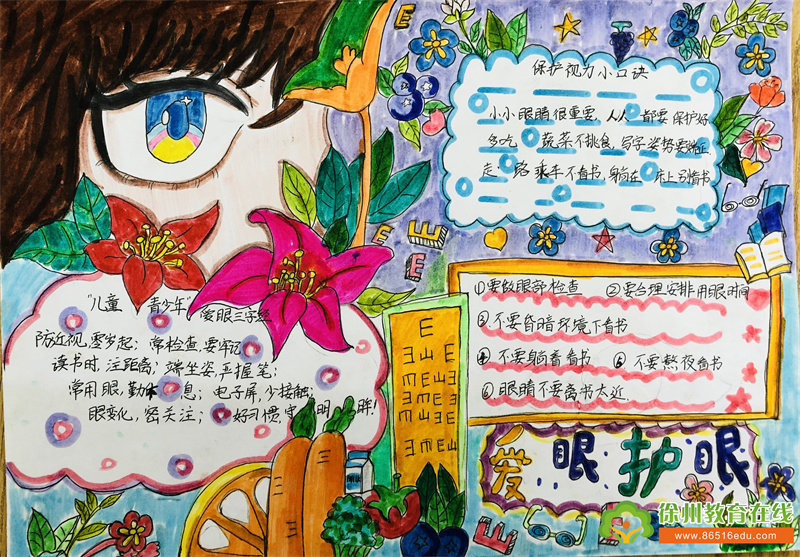 保护视力小口诀
小小眼睛很重要，人人都要保护好
多吃蔬菜不挑食，写字姿势要端正
走路乘车不看书，躺在床上别看书
"儿童青少年"爱眼三字经
防近视，零岁起；常检查，要牢记
读书时，注距离；端坐姿，严握笔；
常用眼，勤休息；电子屏，少接触；
眼变化，密关注；好习惯，守明眸！
①要做眼部检查 ②要合理安排用眼时间
③不要昏暗环境下看书
④不要躺着看书 ⑤不要熬夜看书
⑥眼睛不要离书太近
爱眼护眼
徐州教育在线
www.86516edu.com